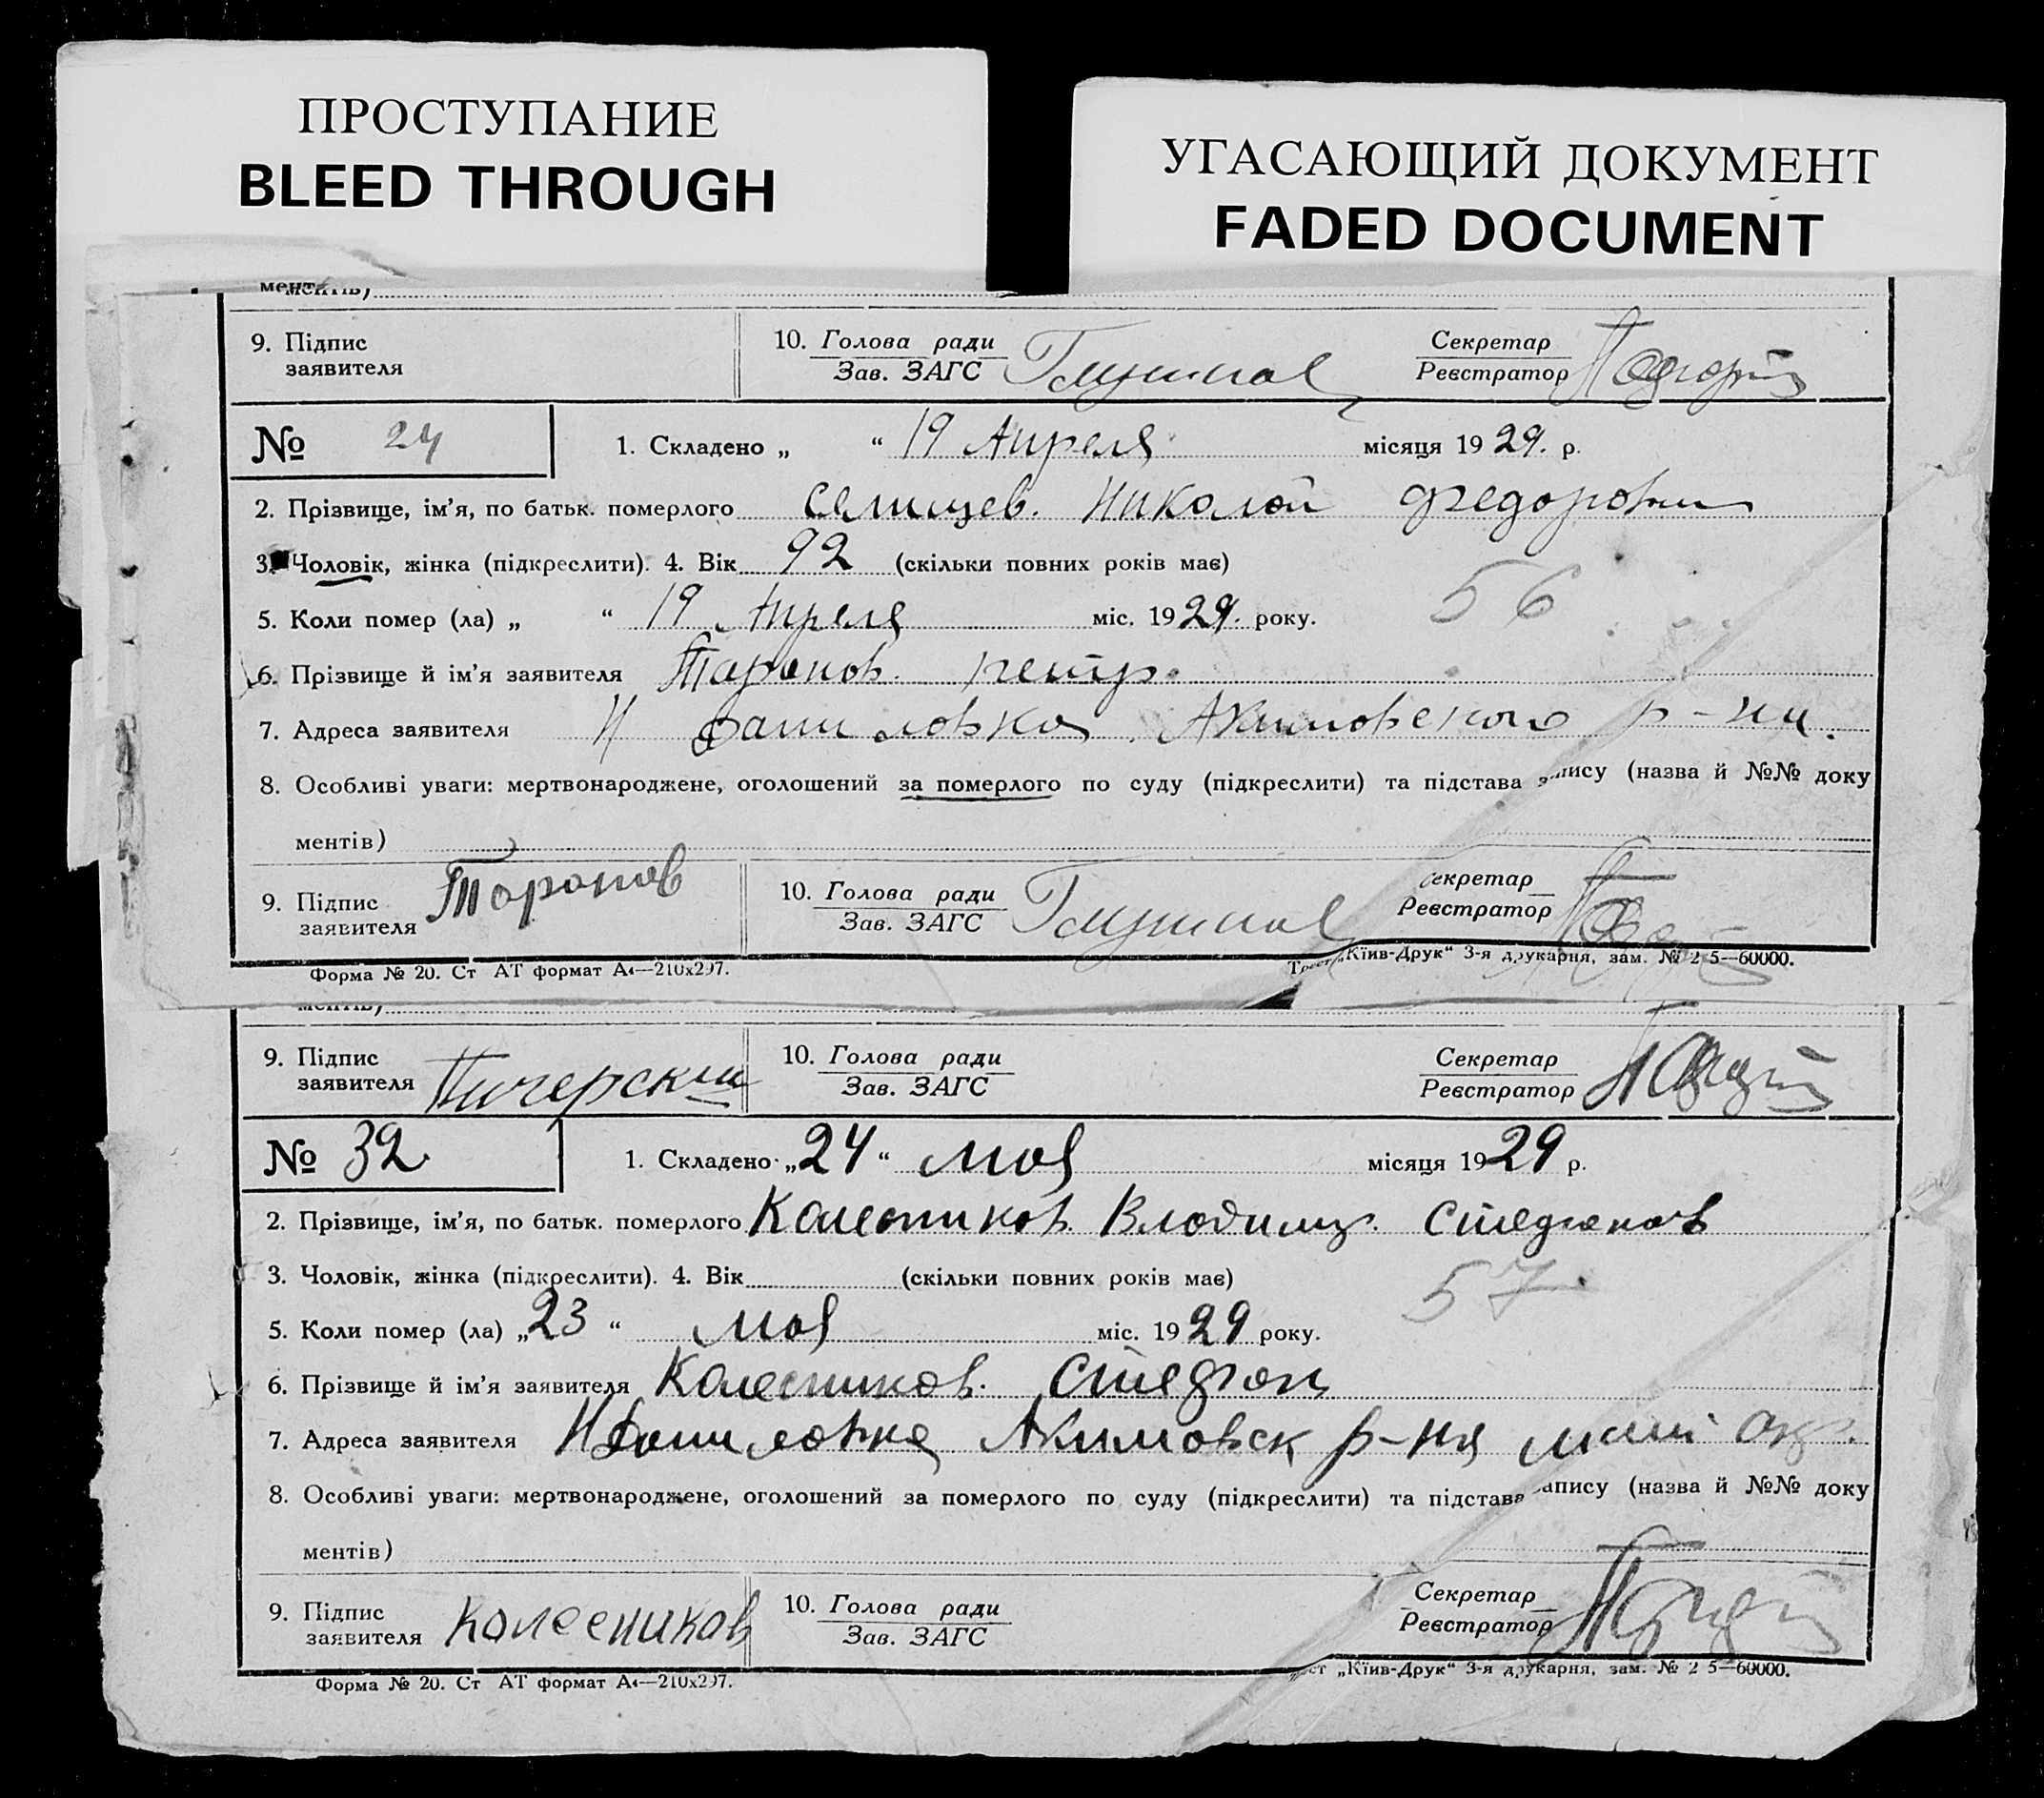 ПРОСТУПАНИЕ
BLEED THROUGH
УГАСАЮЩИЙ ДОКУМЕНТ
FADED DOCUMENT
ментів)
9. Підпис заявителя 10. Голова ради Зав. ЗАГС Секретар Реєстратор
№ 24 1. Складено „ “ 19 Апреля місяця 1929. р.
2. Прізвище, ім'я, по батьк. померлого Селищев. Николай Федорович
3. Чоловік, жінка (підкреслити). 4. Вік 92 (скільки повних років має)
56
5. Коли помер (ла) „ “ 19 Апреля міс. 1929. року.
6. Прізвище й ім'я заявителя Таранов. Петр.
7. Адреса заявителя Н Даниловка Акимовского р-на.
8. Особливі уваги: мертвонароджене, оголошений за померлого по суду (підкреслити) та підстава запису (назва й №№ доку
ментів)
9. Підпис заявителя Таранов 10. Голова ради Зав. ЗАГС Секретар Реєстратор
Форма № 20. Ст АТ формат А4—210х297. Трест „Київ-Друк“ 3-я друкарня, зам. № 2 5—60000.
ментів)
9. Підпис заявителя Пичерский 10. Голова ради Зав. ЗАГС Секретар Реєстратор
№ 32. 1. Складено „24“ мая місяця 1929 р.
2. Прізвище, ім'я, по батьк. померлого Колесников. Владимир. Стефанов
3. Чоловік, жінка (підкреслити). 4. Вік (скільки повних років має)
57
5. Коли помер (ла) „23“ мая міс. 1929 року.
6. Прізвище й ім'я заявителя Колесников. Стефан
7. Адреса заявителя Н Даниловка Акимовск р-на мелит окр.
8. Особливі уваги: мертвонароджене, оголошений за померлого по суду (підкреслити) та підстава запису (назва й №№ доку
ментів)
9. Підпис заявителя Колесников 10. Голова ради Зав. ЗАГС Секретар Реєстратор
Форма № 20. Ст АТ формат А4—210х297. Трест „Київ-Друк“ 3-я друкарня, зам. № 2 5—60000.